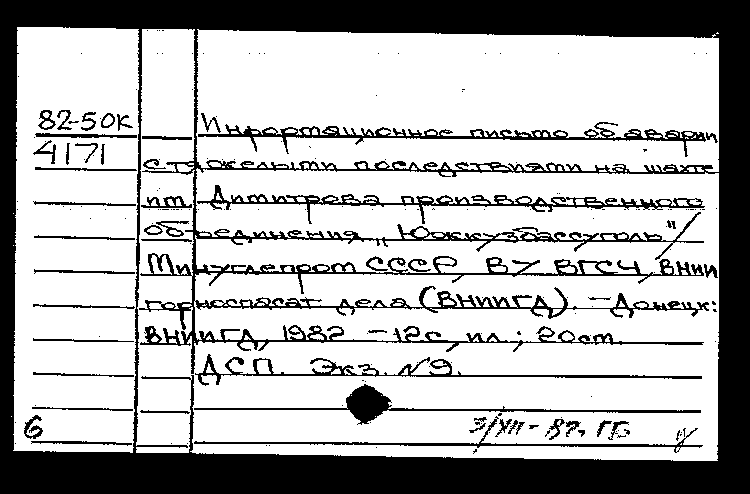 82-50К Информационное письмо об аварии
4171 с тяжелыми последствиями на шахте
им. Димитрова производственного
объединения „Южкузбассуголь"/
Минуглепром СССР, ВУ ВГСЧ, ВНИИ
горноспасат дела (ВНИИГД). – Донецк:
ВНИИГД, 1982 – 12с, ил.; 20см.
ДСП. Экз. №9.
6 3/XII - 82. ГБ